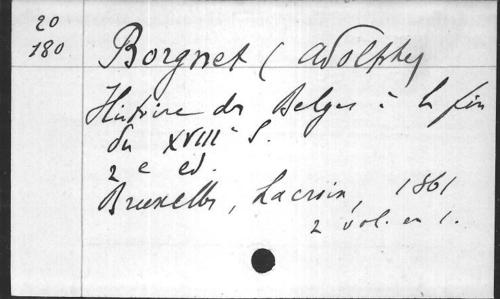 20
180
Borgnet (Adolphe)
Histoire des Belges à la fin
du XVIIIe S.
2e ed.
Bruxelles, Lacroix, 1861
2 vol. en 1.